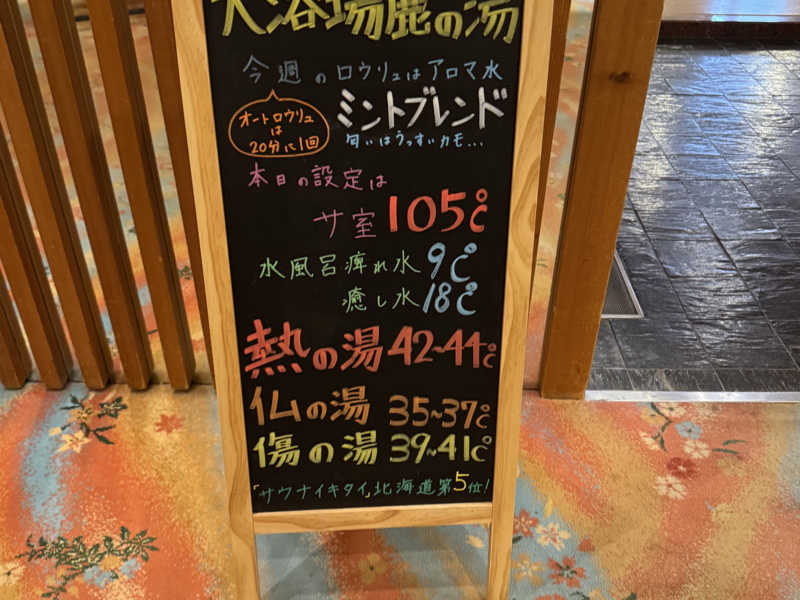 大浴場鹿の湯
今週のロウリュはアロマ水
オートロウリュ
は
20分に1回
ミントブレンド
匂いはうっすいカモ...
本日の設定は
サ室 105℃
水風呂痺れ水 9℃
癒し水 18℃
熱の湯 42~44℃
仏の湯 35~37℃
傷の湯 39~41℃
「サウナイキタイ」北海道第5位!